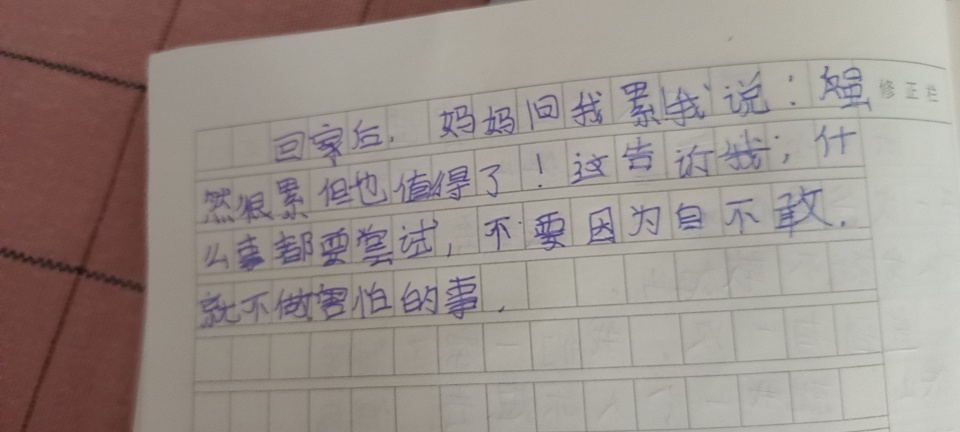 回家后，妈妈问我累我说：虽
修正栏
然很累但也值得了！这告诉我；什
么事都要尝试，不要因为自不敢，
就不做害怕的事．